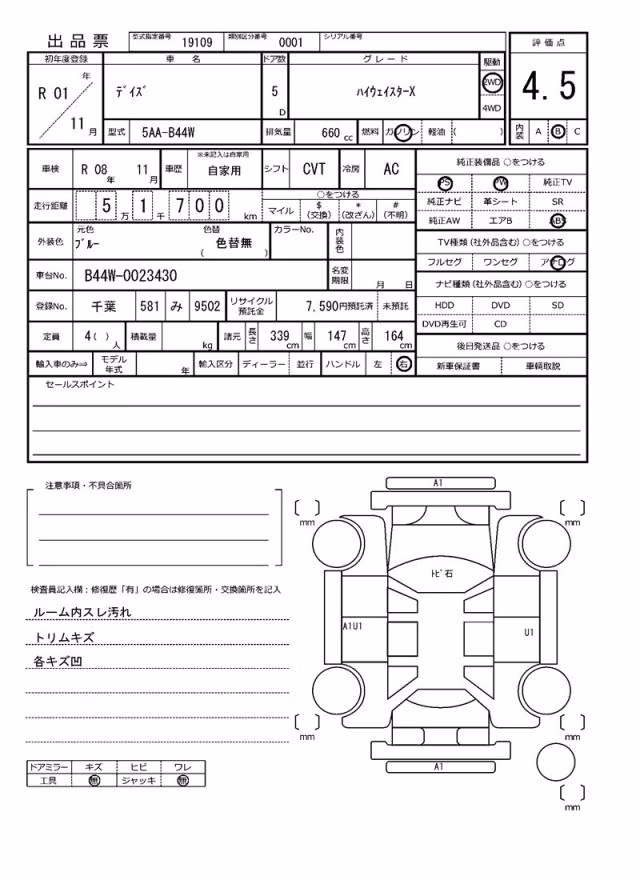 出品票 型式指定番号 19109 類別区分番号 0001 シリアル番号
評価点
4.5
内装 A B C
初年度登録 車名 ドア数 グレード 駆動
R 01 年 11 月 デイズ 5 D ハイウェイスターX 2WD 4WD
型式 5AA-B44W 排気量 660 cc 燃料 ガソリン 軽油 ( )
車検 R 08 年 11 月 車歴 ※未記入は自家用 自家用 シフト CVT 冷房 AC
走行距離 5 万 1 千 7 0 0 km ○をつける
マイル $ (交換) * (改ざん) # (不明)
外装色 元色 ブルー 色替 ( 色替無 ) カラーNo. 内装色
車台No. B44W-0023430 名変期限 月 日
登録No. 千葉 581 み 9502 リサイクル預託金 7,590円預託済 未預託
定員 4( ) 人 積載量 kg 諸元 長さ 339 cm 幅 147 cm 高さ 164 cm
輸入車のみ⇒ モデル年式 年 輸入区分 ディーラー 並行 ハンドル 左 右
純正装備品 ○をつける
PS PW 純正TV
純正ナビ 革シート SR
純正AW エアB ABS
TV種類(社外品含む) ○をつける
フルセグ ワンセグ アナログ
ナビ種類(社外品含む) ○をつける
HDD DVD SD
DVD再生可 CD
後日発送品 ○をつける
新車保証書 車輌取説
セールスポイント
注意事項・不具合箇所
検査員記入欄:修復歴「有」の場合は修復箇所・交換箇所を記入
ルーム内スレ汚れ
トリムキズ
各キズ凹
ドアミラー キズ ヒビ ワレ
工具 無 ジャッキ 無
A1
mm
mm
トビ石
A1U1
U1
mm
mm
A1
mm